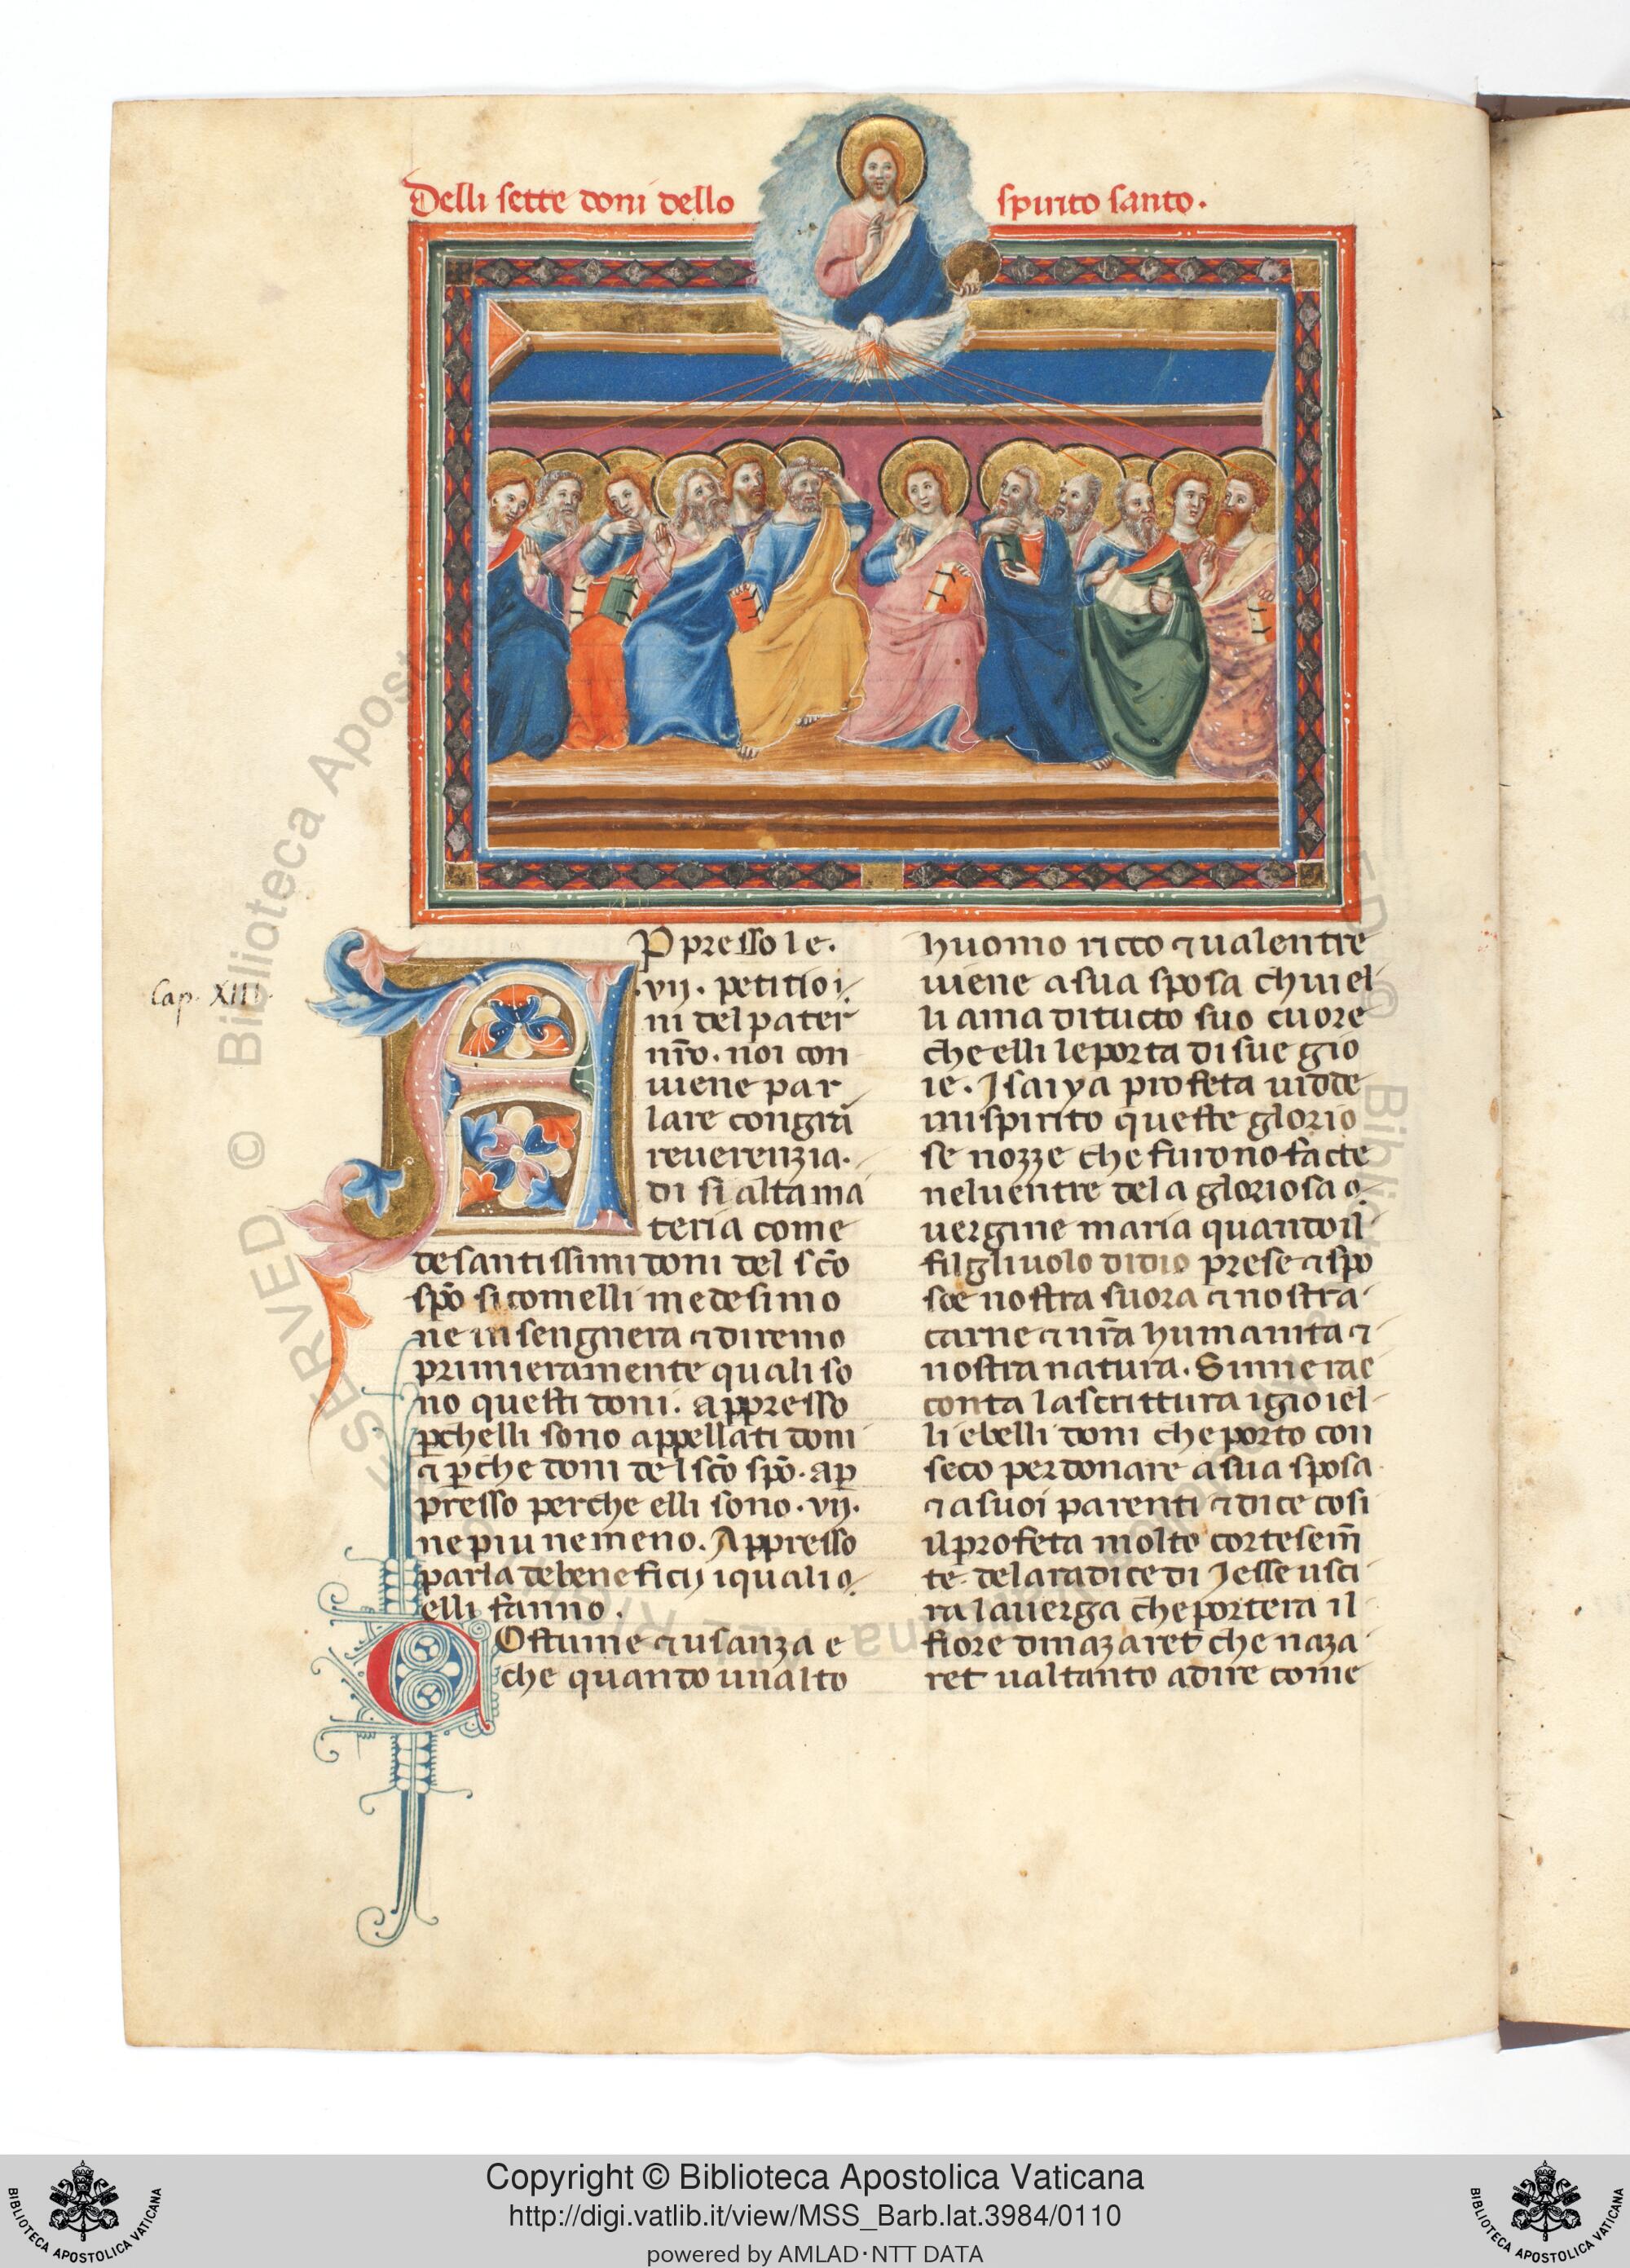 Delli sette doni dello spirito santo.
Cap. XIII.
Appresso le.
.vij. petitioi
ni del pater
nr̄o. noi con
viene par
lare con grā
reverenzia.
di si alta ma
teria come
de santissimi doni del sc̄o
sp̄o si com elli medesimo
ne insengnera ⁊ diremo
primieramente quali so
no questi doni. appresso
ꝑchelli sono appellati doni
⁊ ꝑche doni del sc̄o sp̄o. ap
presso perche elli sono .vij.
ne piu ne meno. Appresso
parla de beneficij i quali
elli fanno.
Costume ⁊ usanza e
che quando un alto
huomo ricco ⁊ valentre
viene a sua sposa ch uiel
li ama di tucto suo cuore
che elli le porta di sue gio
ie. Isaiya profeta vidde
in ispirito queste glorio
se nozze che furono facte
nel ventre de la gloriosa
vergine maria quando il
filgliuolo di dio prese ⁊ spo
soe nostra suora ⁊ nostra
carne ⁊ nr̄a humanita ⁊
nostra natura. Si me rac
conta la scrittura i gioiel
li e belli doni che porto con
seco per donare a sua sposa
⁊ a suoi parenti ⁊ dice cosi
il profeta molto cortesem̄
te. de la radice di Jesse usci
ra la verga che portera il
fiore di nazaret che naza
ret val tanto a dire come
Copyright © Biblioteca Apostolica Vaticana
http://digi.vatlib.it/view/MSS_Barb.lat.3984/0110
powered by AMLAD·NTT DATA
BIBLIOTECA APOSTOLICA VATICANA
BIBLIOTECA APOSTOLICA VATICANA